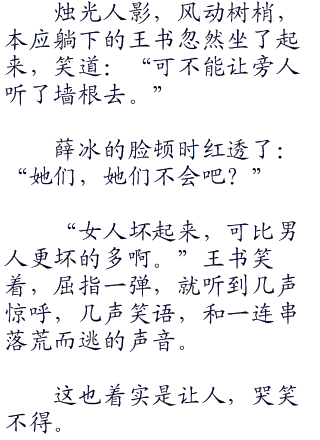 烛光人影，风动树梢，
本应躺下的王书忽然坐了起
来，笑道：“可不能让旁人
听了墙根去。”
薛冰的脸顿时红透了：
“她们，她们不会吧？”
“女人坏起来，可比男
人更坏的多啊。”王书笑
着，屈指一弹，就听到几声
惊呼，几声笑语，和一连串
落荒而逃的声音。
这也着实是让人，哭笑
不得。